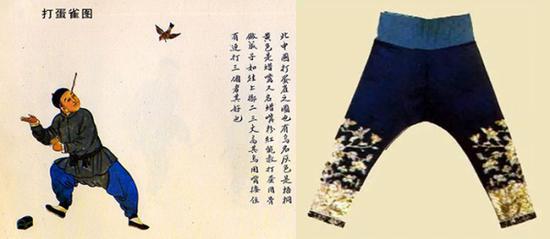 打蛋雀图
此中國打蛋雀之圖也有鳥名灰色是梧桐
黄色是蜡嘴又名蜡嘴粉紅能教打蛋用骨
做成子如往上擲二三丈高其鳥用嘴接住
有連打三個者真好也